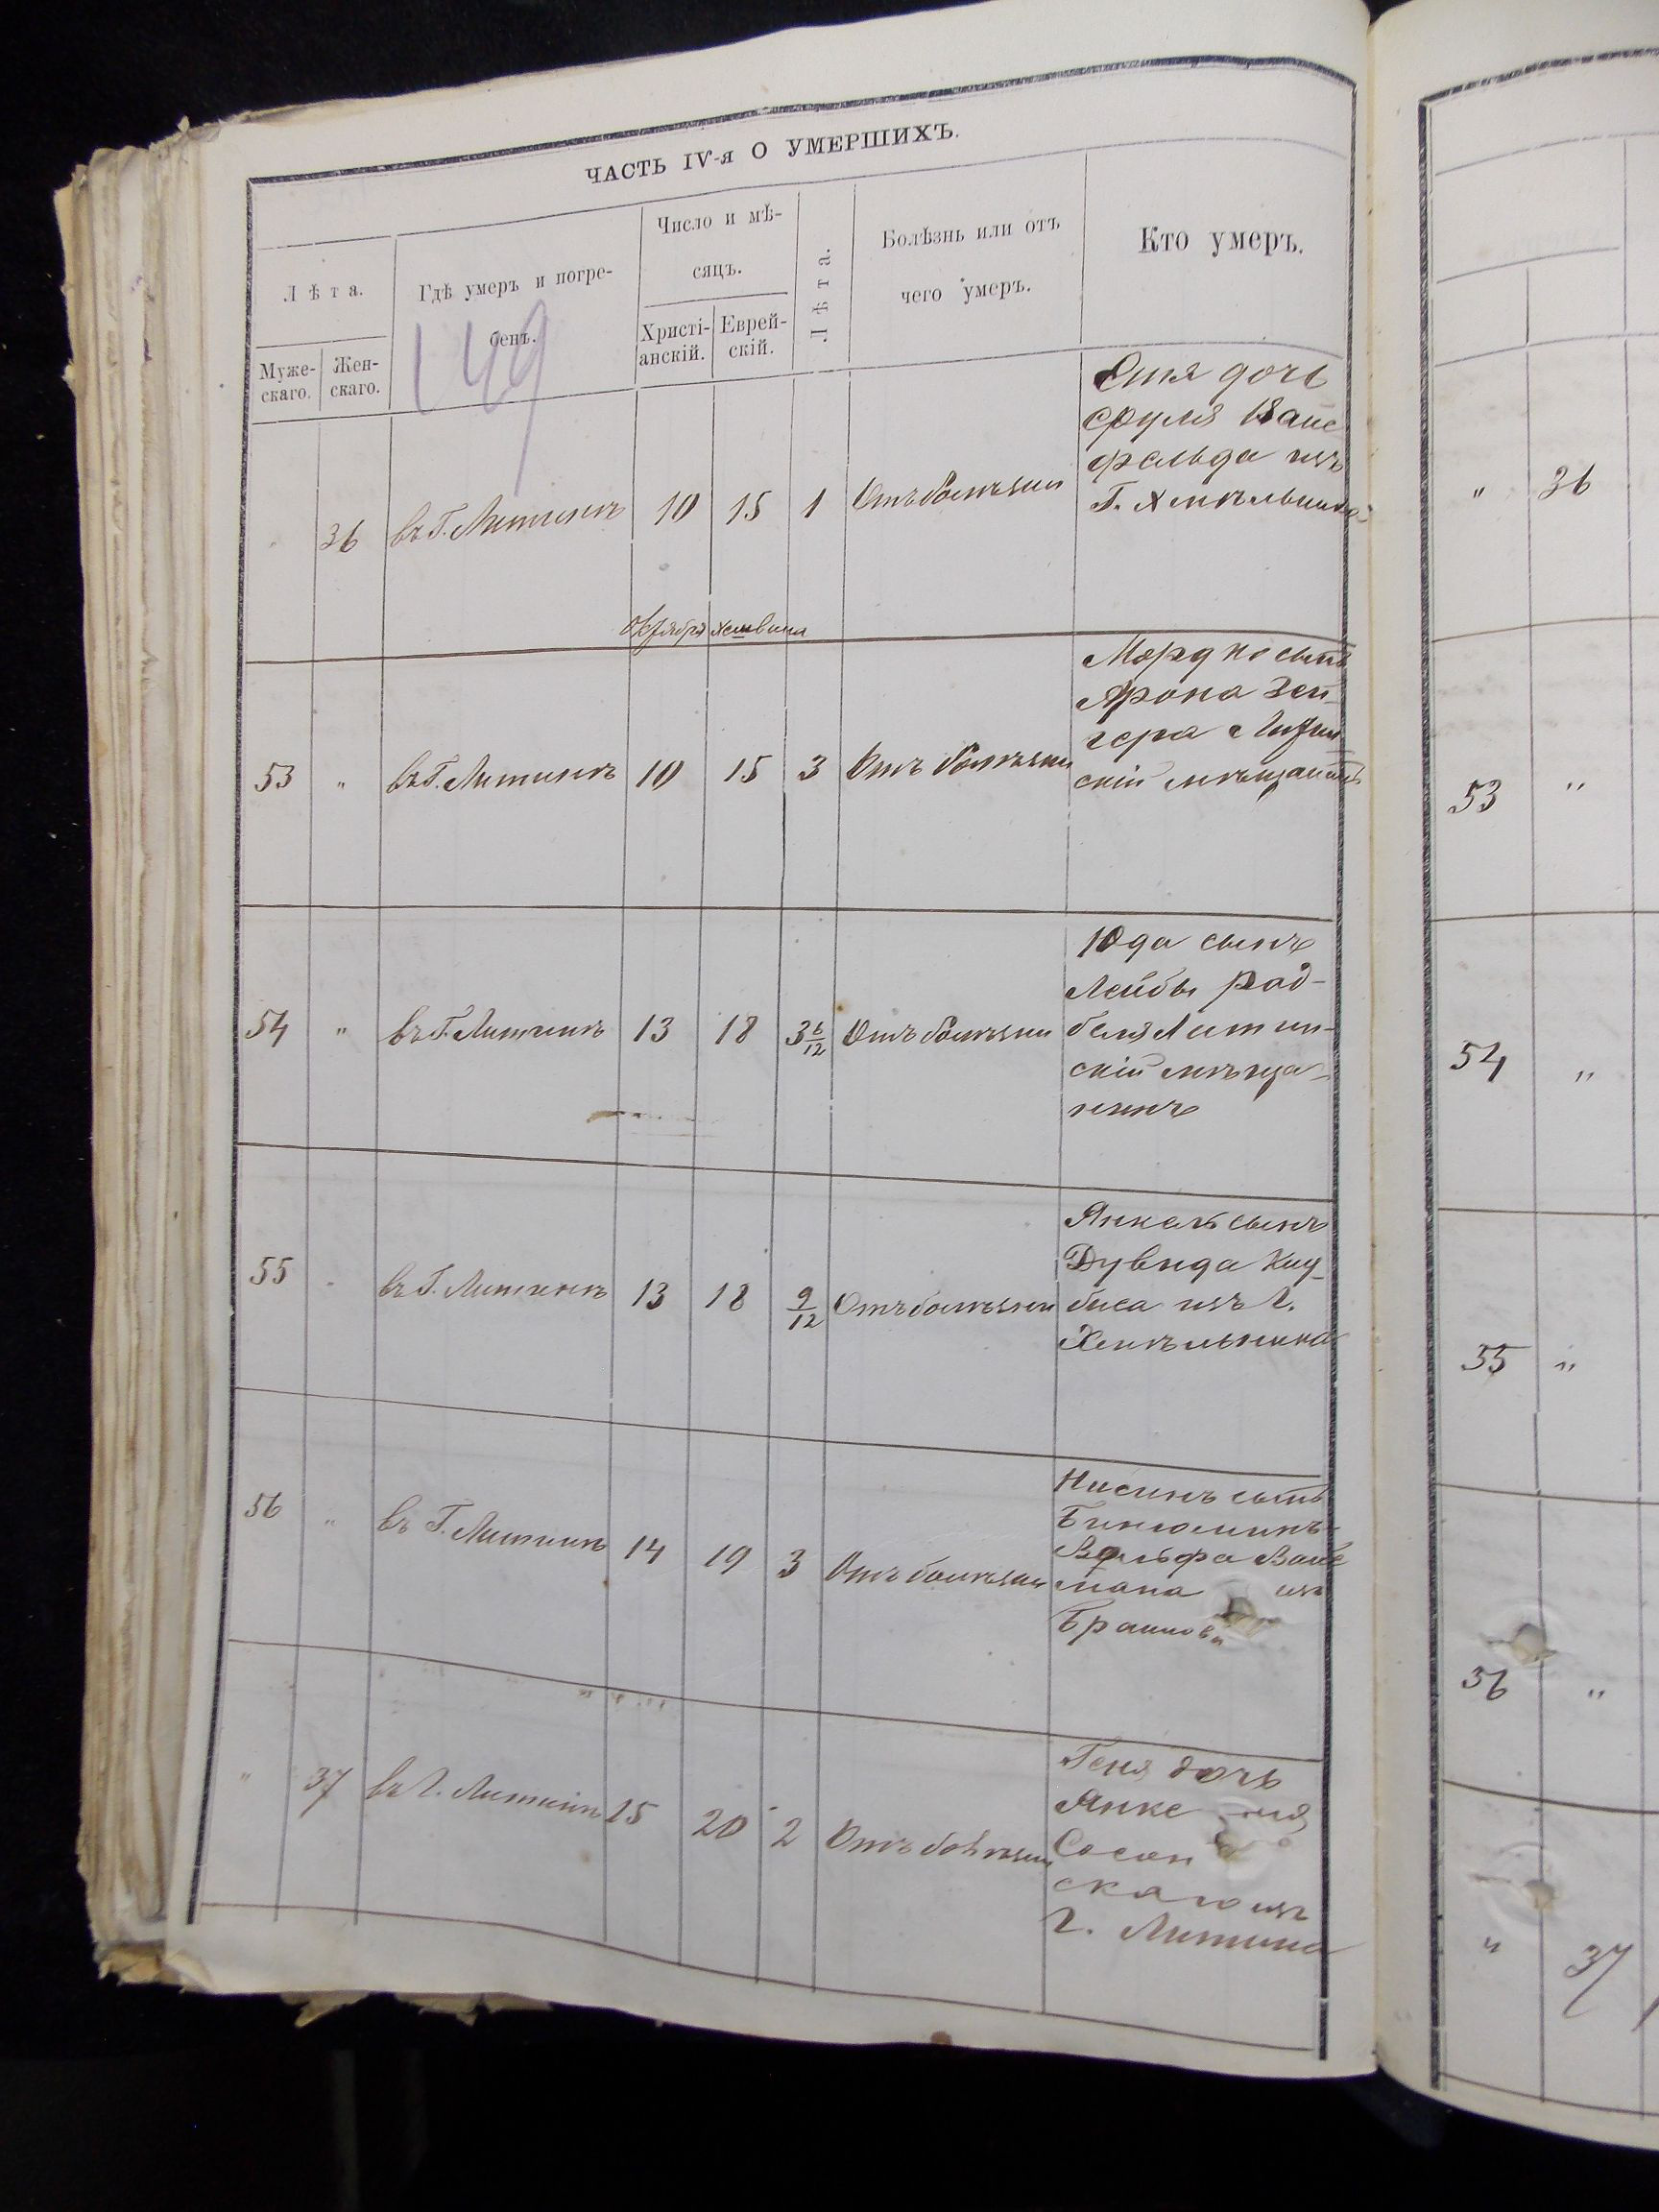 ЧАСТЬ IV-я О УМЕРШИХЪ.
Лѣта.
Муже-
скаго.
Жен-
скаго.
Гдѣ умеръ и погре-
бенъ.
149
Число и мѣ-
сяцъ.
Христі-
анскій.
Еврей-
скій.
Лѣта.
Болѣзнь или отъ
чего умеръ.
Кто умеръ.
36 въ Г. Литинѣ 10 15 1 Отъ болѣзни
дочь
Сруля Вайс
фельда изъ
Г. Хмѣльника
Октября хешвина
53 " въ Г. Литинѣ 10 15 3 Отъ болѣзни
Мордко сынъ
Арона Зей-
гера Литин
скій мѣщанинъ
54 " въ Г. Литинѣ 13 18 3 6/12 Отъ болѣзни
Юда сынъ
Лейбы
Литин-
скій мѣща-
нинъ
55 въ Г. Литинѣ 13 18 9/12 Отъ болѣзни
Янкель сынъ
Дувида
изъ Г.
Хмѣльника
56 " въ Г. Литинѣ 14 19 3 Отъ болѣзни
Нисинъ сынъ
Бинюминъ-
Вольфа Вайс
мана изъ
" 37 въ Г. Литинѣ 15 20 2 Отъ болѣзни
Геня дочь
Янкеля
Сосон
скаго изъ
г. Литина
" 36
53 "
54 "
55 "
56 "
" 37